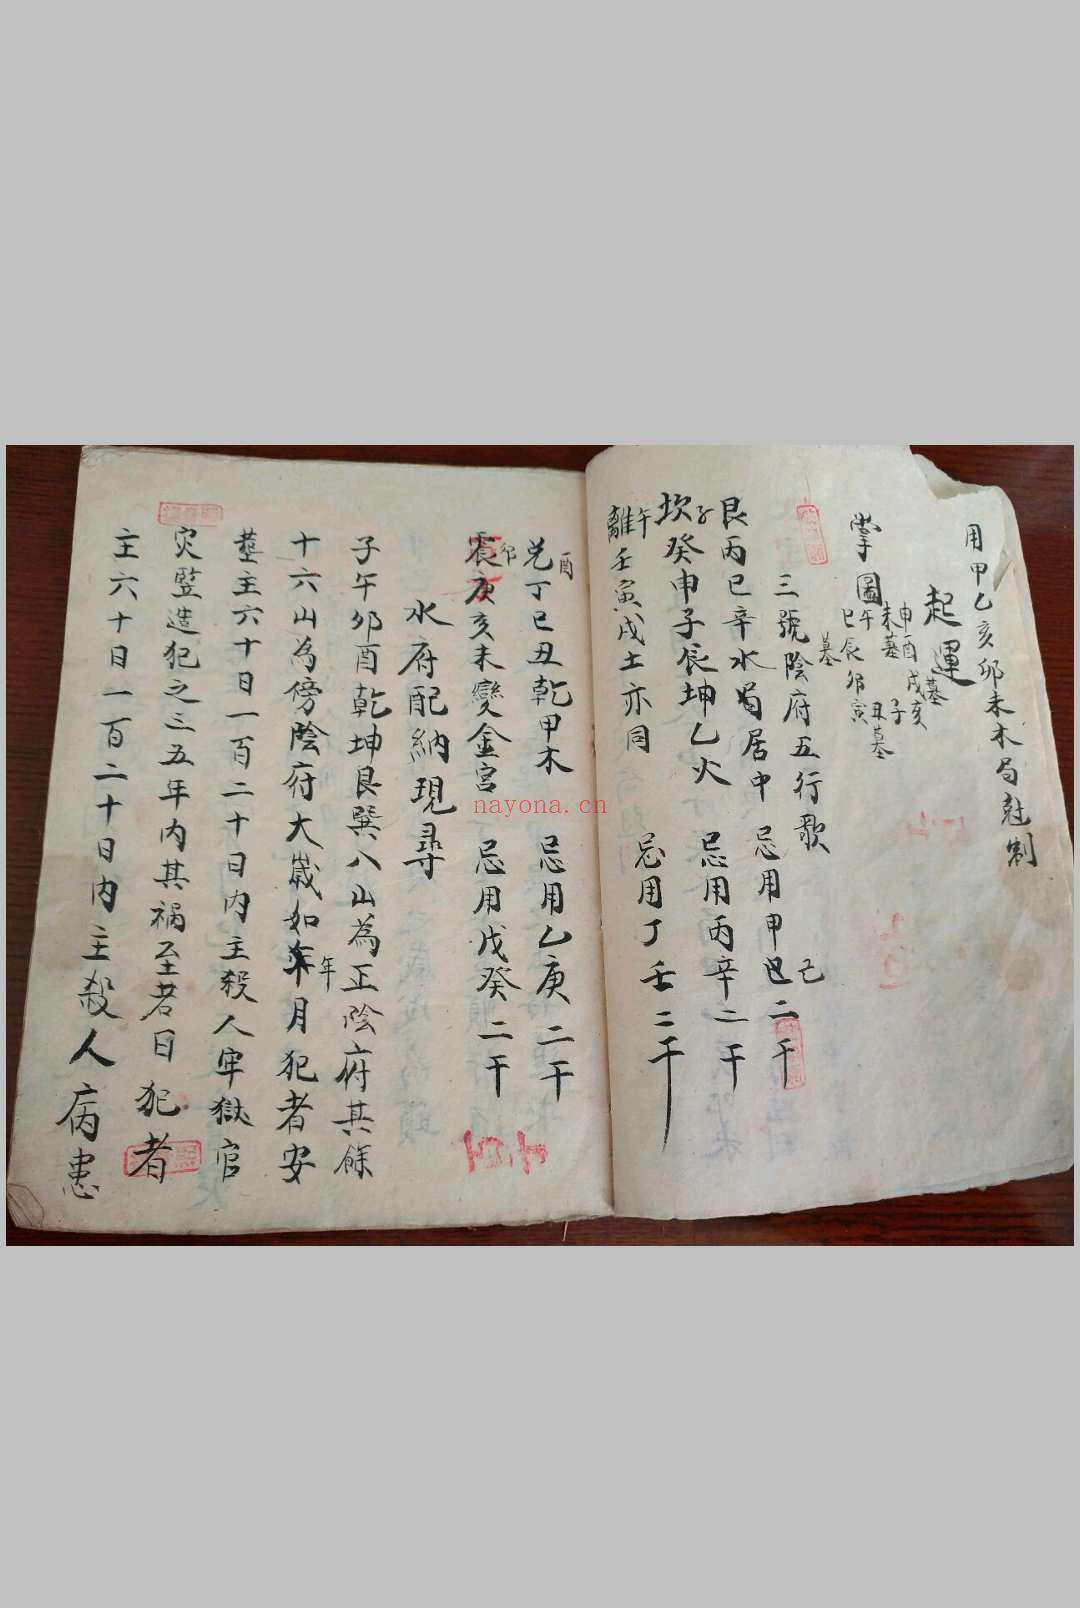 用甲乙亥卯未木局尅制
起運
墓
申酉戌亥
未墓 子
丑墓
掌圖
午
巳辰卯寅
墓
三號陰府五行歌
艮丙巳辛水局居中 忌用甲己二干
己
坎癸申子辰坤乙火 忌用丙辛二干
子
離壬寅戌土亦同 忌用丁壬二干
午
兌丁巳丑乾甲木 忌用乙庚二干
酉
震庚亥未變金宮 忌用戊癸二干
卯
水府配納現尋
子午卯酉乾坤艮巽八山為正陰府其餘
十六山為傍陰府大嵗如年月犯者安
年
塟主六十日一百二十日内主殺人牢獄官
灾竪造犯之三五年内其禍至若日犯者
主六十日一百二十日内主殺人病患
nayona.cn